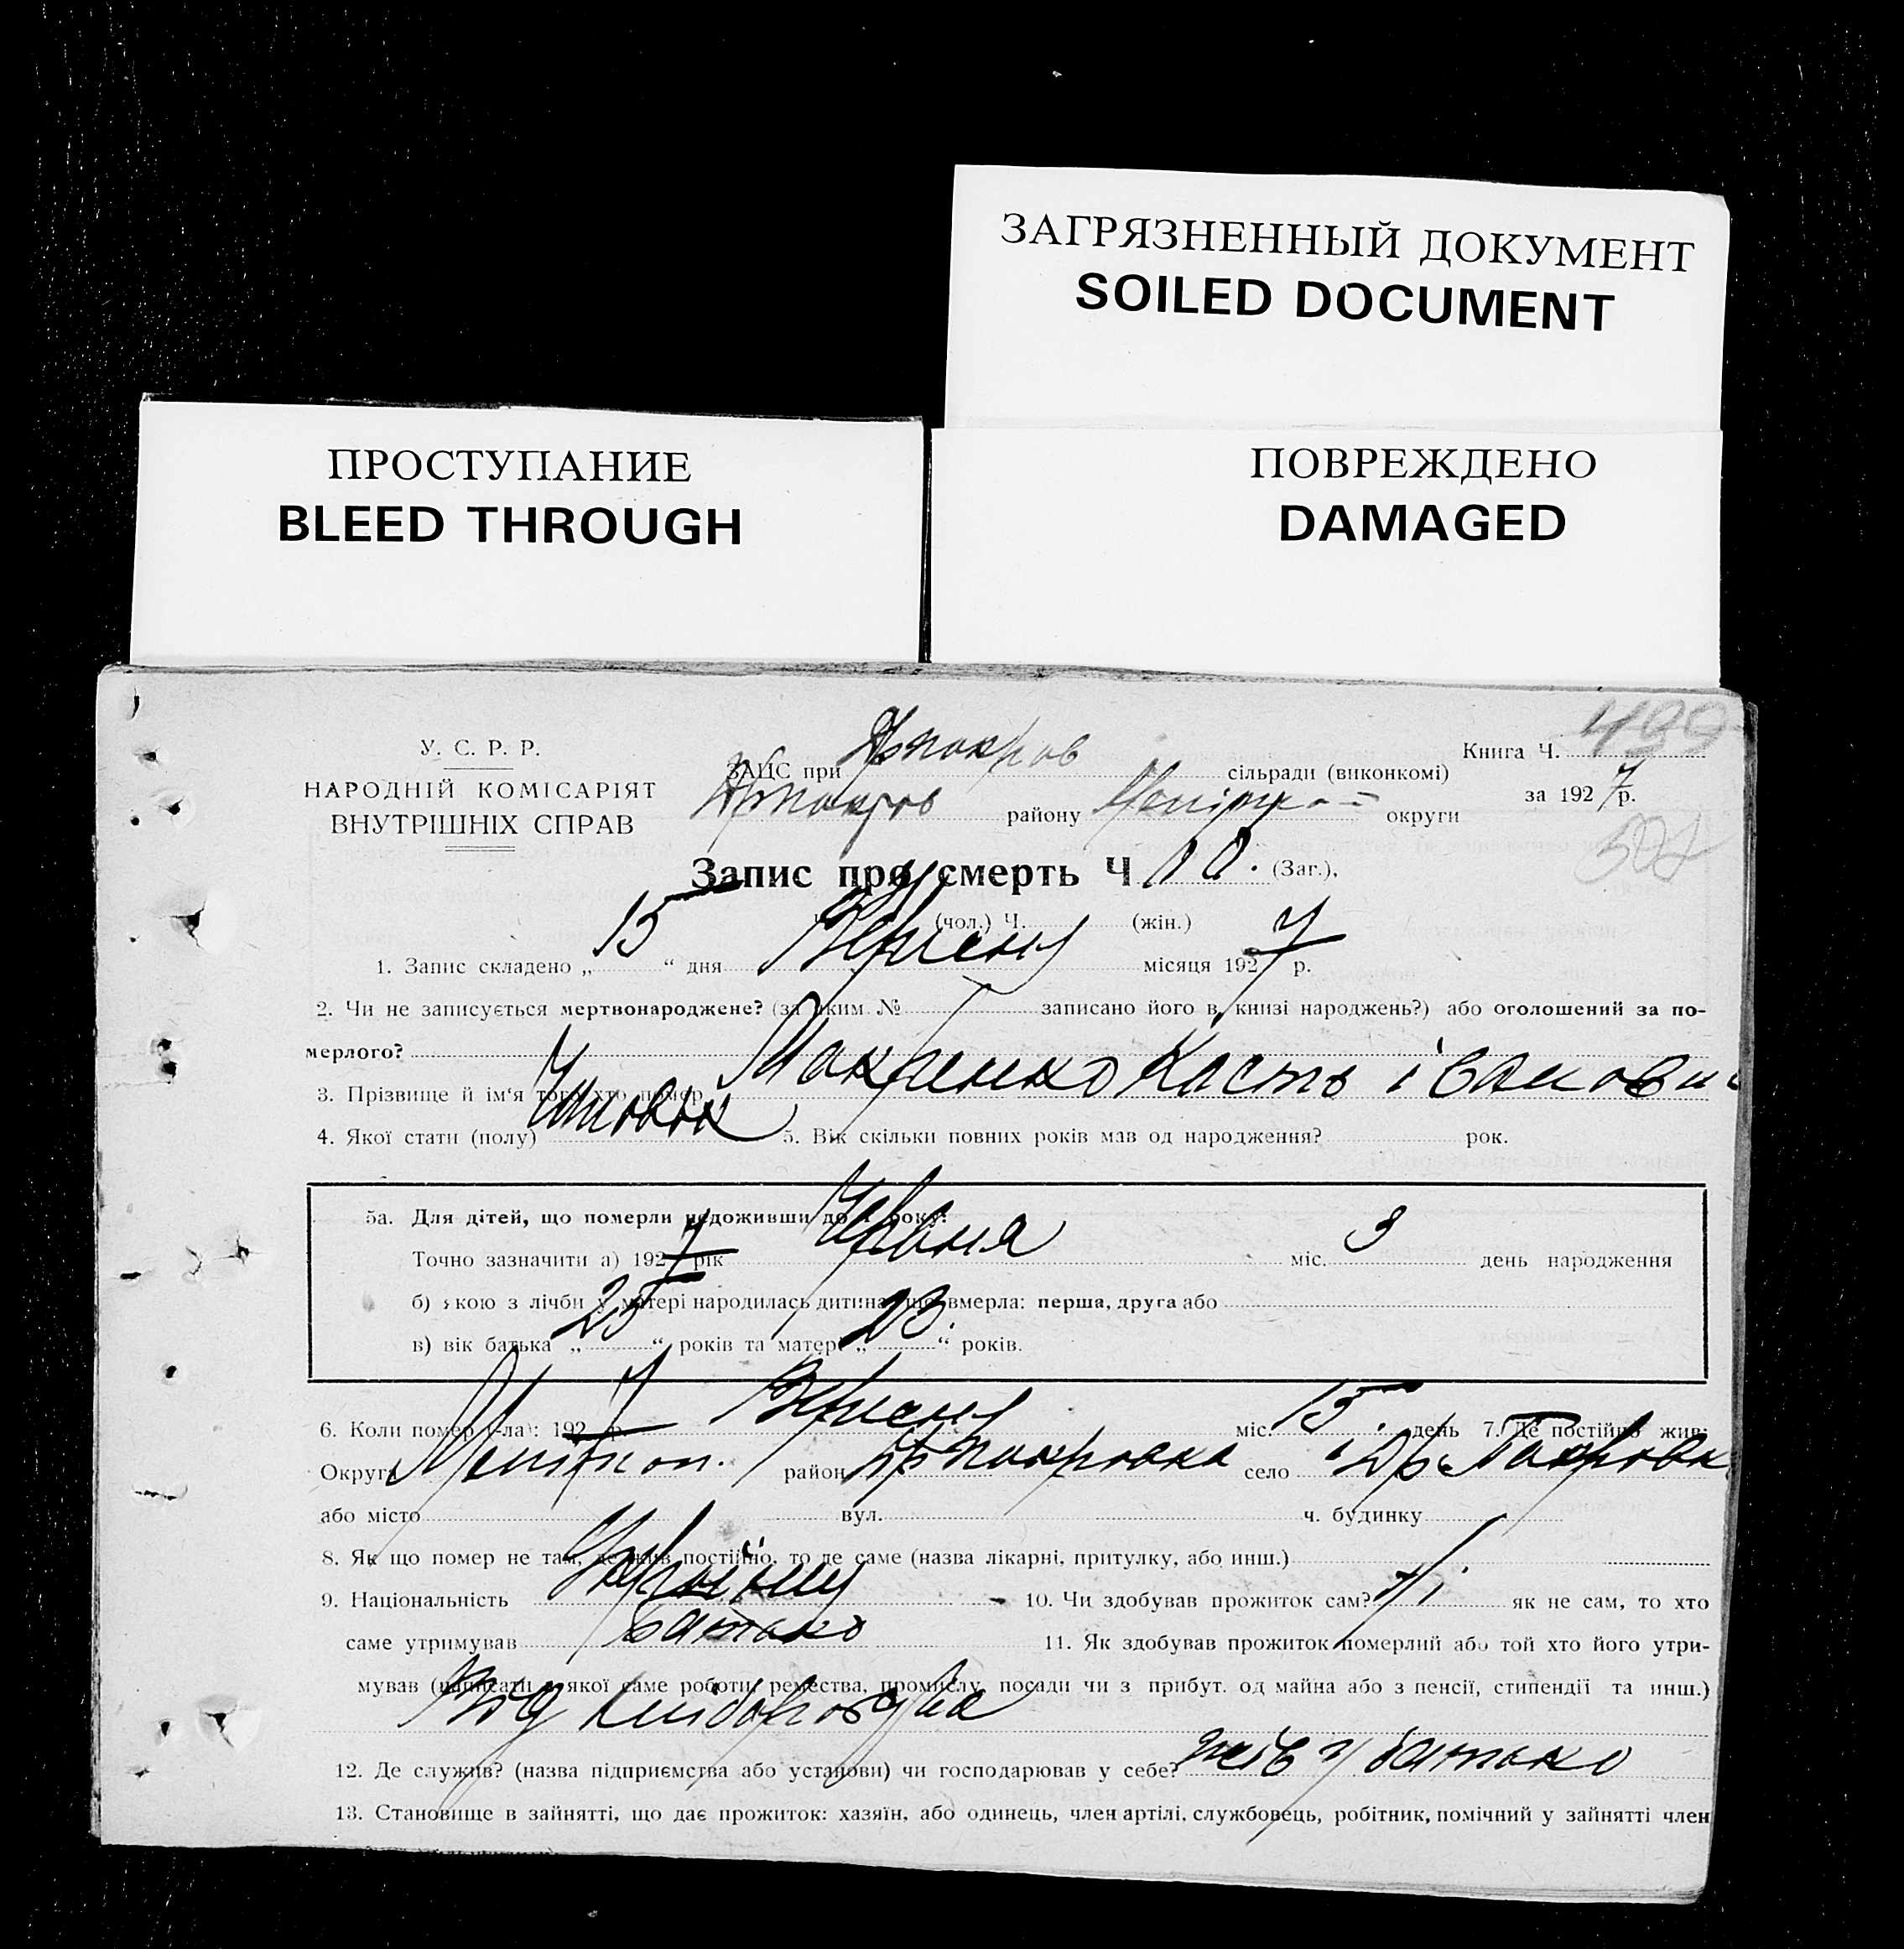 ЗАГРЯЗНЕННЫЙ ДОКУМЕНТ
SOILED DOCUMENT
ПРОСТУПАНИЕ
BLEED THROUGH
ПОВРЕЖДЕНО
DAMAGED
У. С. Р. Р.
НАРОДНІЙ КОМІСАРІЯТ
ВНУТРІШНІХ СПРАВ
Книга Ч. 499
ЗАЦС при сільради (виконкомі)
за 1927 р.
району округи
507
Запис про смерть Ч 10. (Заг.),
(чол.) Ч. (жін.)
1. Запис складено „15“ дня Вересня місяця 1927 р.
2. Чи не записується мертвонароджене? (за яким № записано його в книзі народжень?) або оголошений за по-
мерлого?
3. Прізвище й ім'я того хто помер Макаренко Кость Іванови
4. Якої стати (полу) 5. Вік скільки повних років мав од народження? рок.
5а. Для дітей, що померли недоживши до 1 року:
Точно зазначити а) 1927 рік Червня міс. 3 день народження
б) якою з лічби у матері народилась дитина, що вмерла: перша, друга або
в) вік батька „25“ років та матері „23.“ років.
6. Коли помер (-ла): 1927 р. Вересня міс. 15. день 7. Де постійно жив:
Округа Мелітоп. район Покровка село Покровка
або місто вул. ч. будинку
8. Як що помер не там, де жив постійно, то де саме (назва лікарні, притулку, або инш.)
9. Національність 10. Чи здобував прожиток сам? Ні як не сам, то хто
саме утримував батько 11. Як здобував прожиток померлий або той хто його утри-
мував (написати з якої саме роботи, ремества, промислу, посади чи з прибут. од майна або з пенсії, стипендії та инш.)
Від хліборобства
12. Де служив? (назва підприємства або установи) чи господарював у себе? жив у батько
13. Становище в зайнятті, що дає прожиток: хазяїн, або одинець, член артілі, службовець, робітник, помічний у зайнятті член